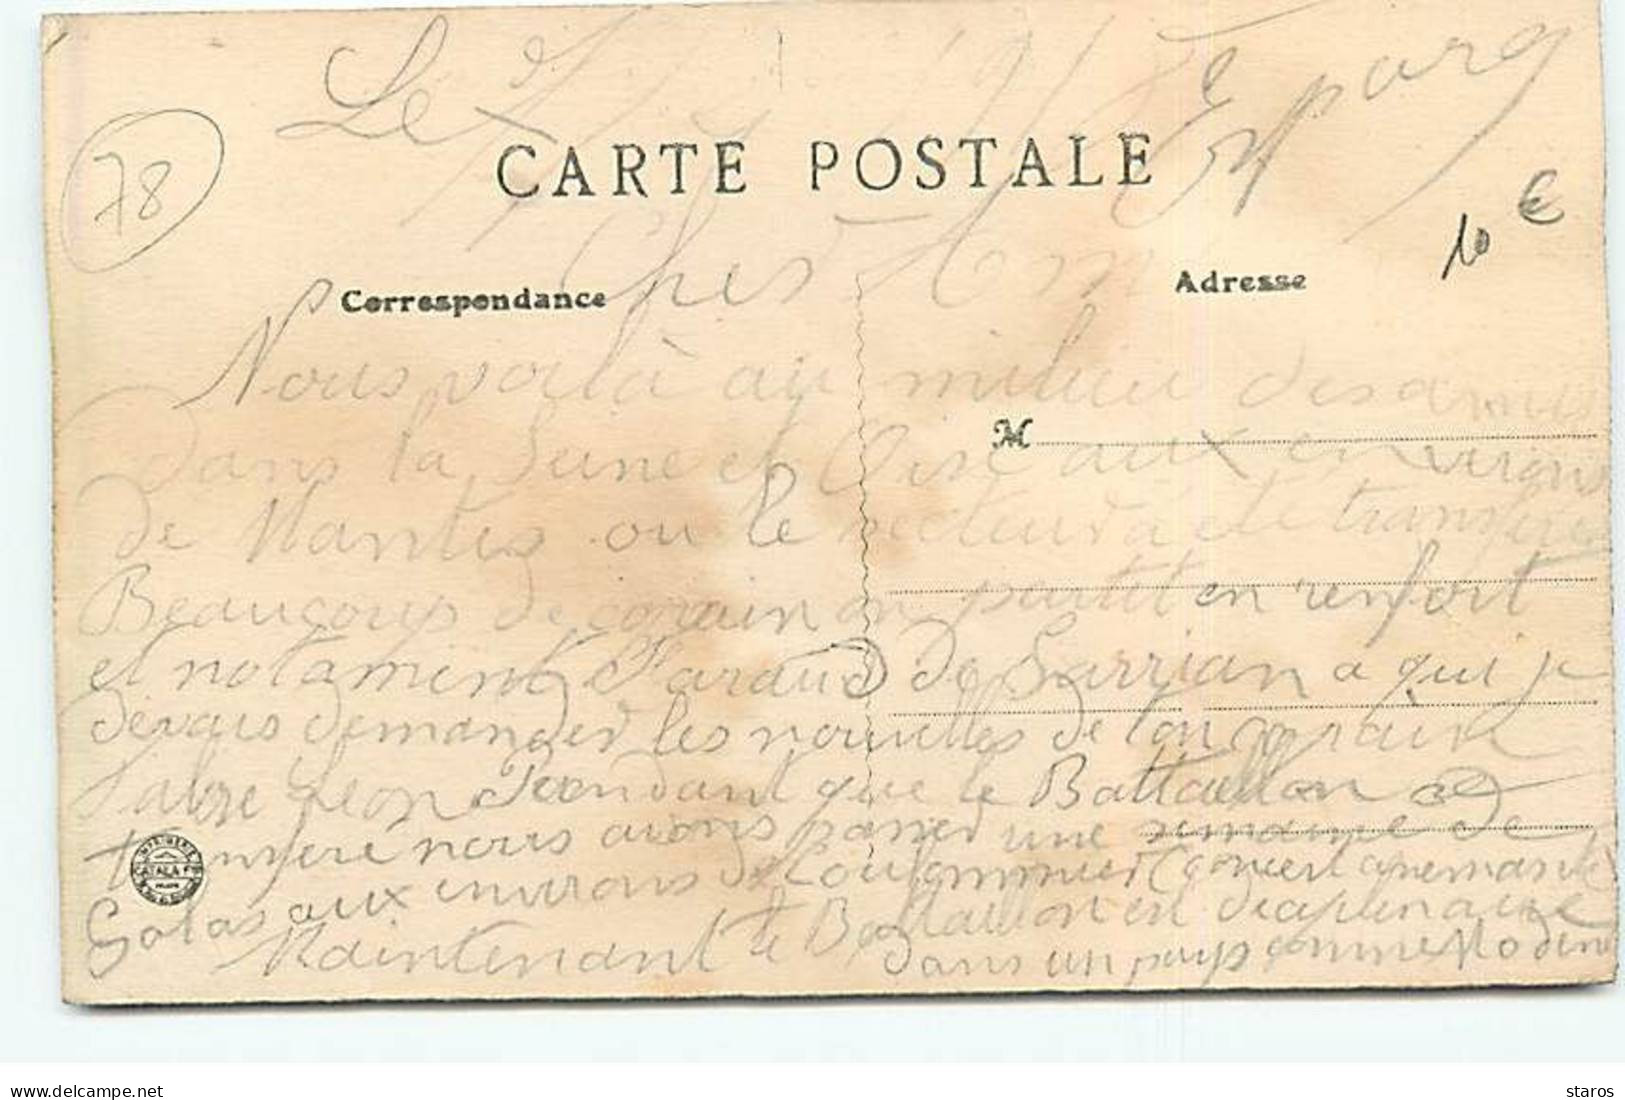 Le
Eparg
78
CARTE POSTALE
10 €
Chers Am
Correspondance
Adresse
Nous voilà au milieu des
M
Dans la Seine et Oise aux environs
de Mantes ou le secteur a été transfere
Beaucoup de copain on partit en renfort
et notament Faraud de Sarrian a qui je
devais demander les nouvelles de ton copain
Fabre Leon Pendant que le Battaillon
nous avons passer une semaine de
Galas aux environs de Coulommier
Maintenant le Battaillon est
dans un pays comme Modene
IMPRIMERIE CATALA
delcampe.net
staros